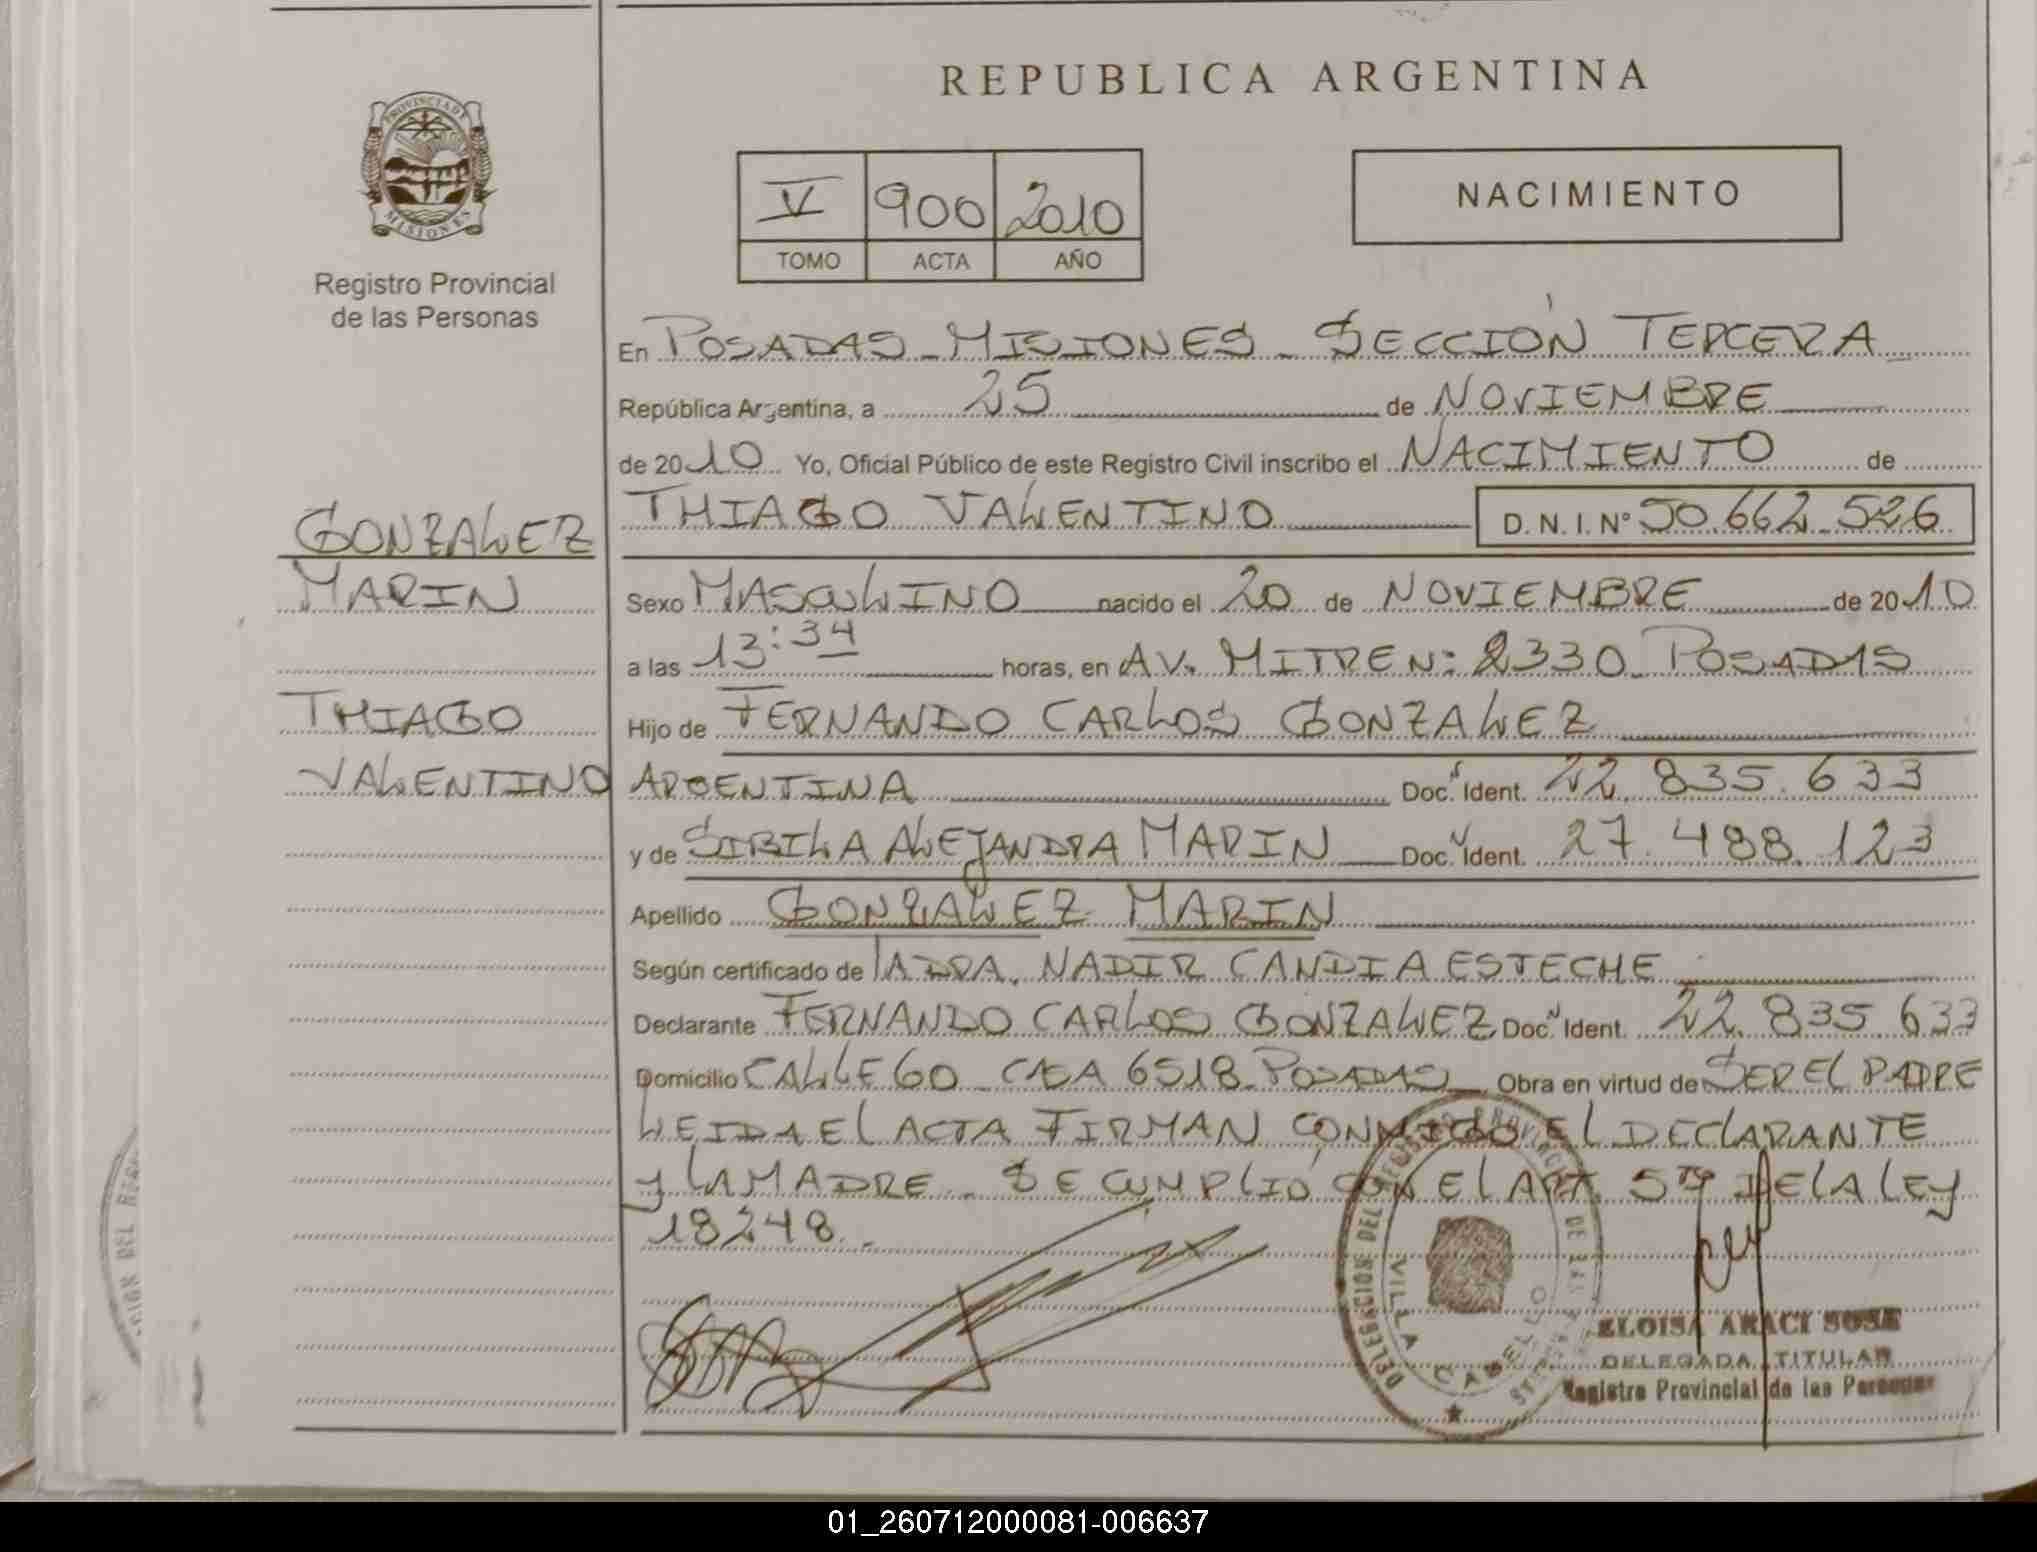 REPUBLICA ARGENTINA
PROVINCIA DE
MISIONES
Registro Provincial
de las Personas
V 900 2010
TOMO ACTA AÑO
NACIMIENTO
En POSADAS - MISIONES - SECCIÓN TERCERA
República Argentina, a 25 de NOVIEMBRE
de 2010 Yo, Oficial Público de este Registro Civil inscribo el NACIMIENTO de
THIAGO VALENTINO D. N. I. N° 50.662.526
GONZALEZ
MARIN
THIAGO
VALENTINO
Sexo MASCULINO nacido el 20 de NOVIEMBRE de 2010
a las 13:34 horas, en AV. MITRE N: 2330 POSADAS
Hijo de FERNANDO CARLOS GONZALEZ
ARGENTINA Doc. Ident. 22.835.633
y de SIBILA ALEJANDRA MARIN Doc. Ident. 27.488.123
Apellido GONZALEZ MARIN
Según certificado de LA DRA. NADIR CANDIA ESTECHE
Declarante FERNANDO CARLOS GONZALEZ Doc. Ident. 22.835.633
Domicilio CALLE 60 - CASA 6518 - POSADAS Obra en virtud de SER EL PADRE
LEIDA EL ACTA FIRMAN CONMIGO EL DECLARANTE
y LA MADRE - SE CUMPLIÓ CON EL ART. 5TO DE LA LEY
18248.-
DELEGACION DEL REGISTRO PROVINCIAL DE LAS
VILLA CABELLO
ELOISA ARACI SOSA
DELEGADA TITULAR
Registro Provincial de las Personas
01_260712000081-006637